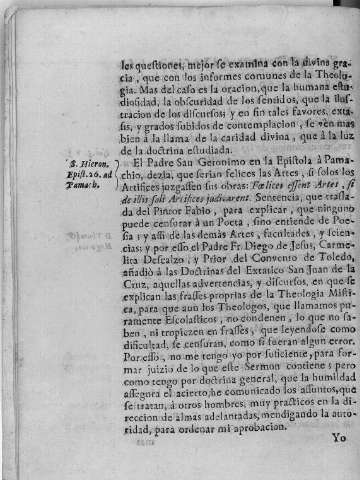 les questiones, mejor se examina con la divina gra-
cia, que con los informes comunes de la Theolo-
gia. Mas del caso es la oracion, que la humana estu-
diosidad, la obscuridad de los sentidos, que la ilus-
tracion de los discursos; y en fin tales favores, exta-
sis, y grados subidos de contemplacion, se ven mas
bien à la llama de la caridad divina, que à la luz
de la doctrina estudiada.
S. Hieron.
Epist. 26. ad
Pamach.
El Padre San Geronimo en la Epistola à Pama-
chio, dezia, que serian felices las Artes, si solos los
Artifices juzgassen sus obras: Fœlices essent Artes, si
de illis soli Artifices judicarent. Sentencia, que trasla-
da del Pintor Fabio, para explicar, que ninguno
puede censurar à un Poeta, sino entiende de Poe-
sia: y assi de las demàs Artes, facultades, y scien-
cias: y por esso el Padre Fr. Diego de Jesus, Carme-
lita Descalzo, y Prior del Convento de Toledo,
añadiò à las Doctrinas del Extatico San Juan de la
Cruz, aquellas advertencias, y discursos, en que se
explican las frasses proprias de la Theologia Misti-
ca, para que aun los Theologos, que llamamos pu-
ramente Escolasticos, no condenen, lo que no sa-
ben, ni tropiezen en frasses, que leyendose como
dificultad, se censuran, como si fueran algun error.
Por esso, no me tengo yo por suficiente, para for-
mar juizio de lo que este Sermon contiene: pero
como tengo por doctrina general, que la humildad
assegura el acierto, he comunicado los assuntos, que
se tratan, à otros hombres, muy practicos en la di-
reccion de almas adelantadas, mendigando la auto-
ridad, para ordenar mi aprobacion.
Yo